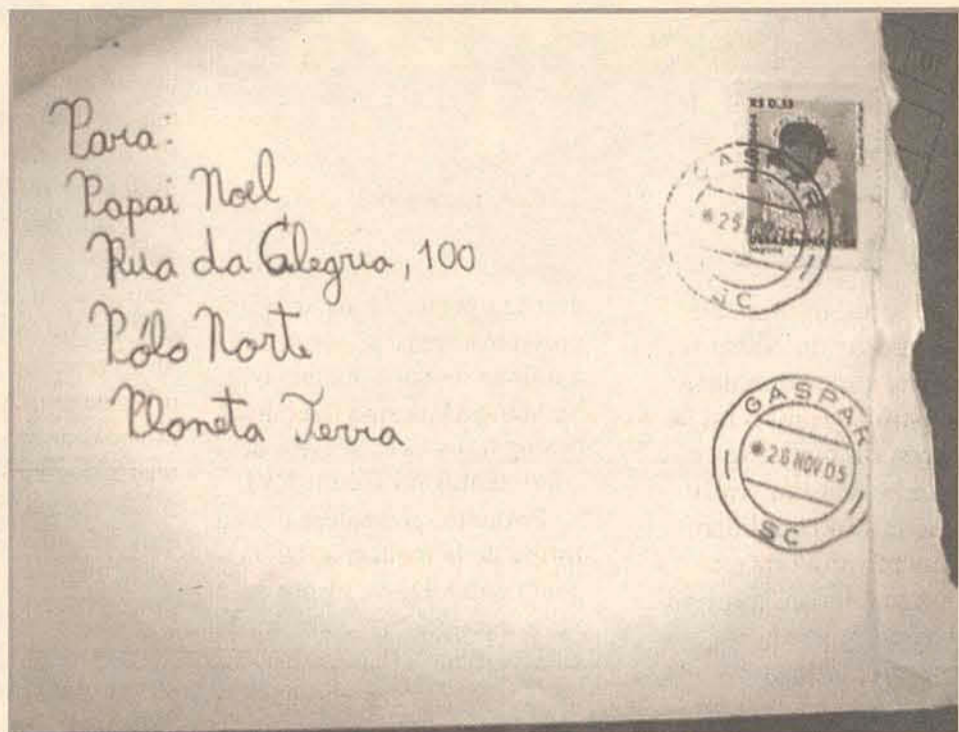 Para:
Papai Noel
Rua da Alegria, 100
Pólo Norte
Planeta Terra
R$ 0,55
SC
GASPAR
*28 NOV 05
SC